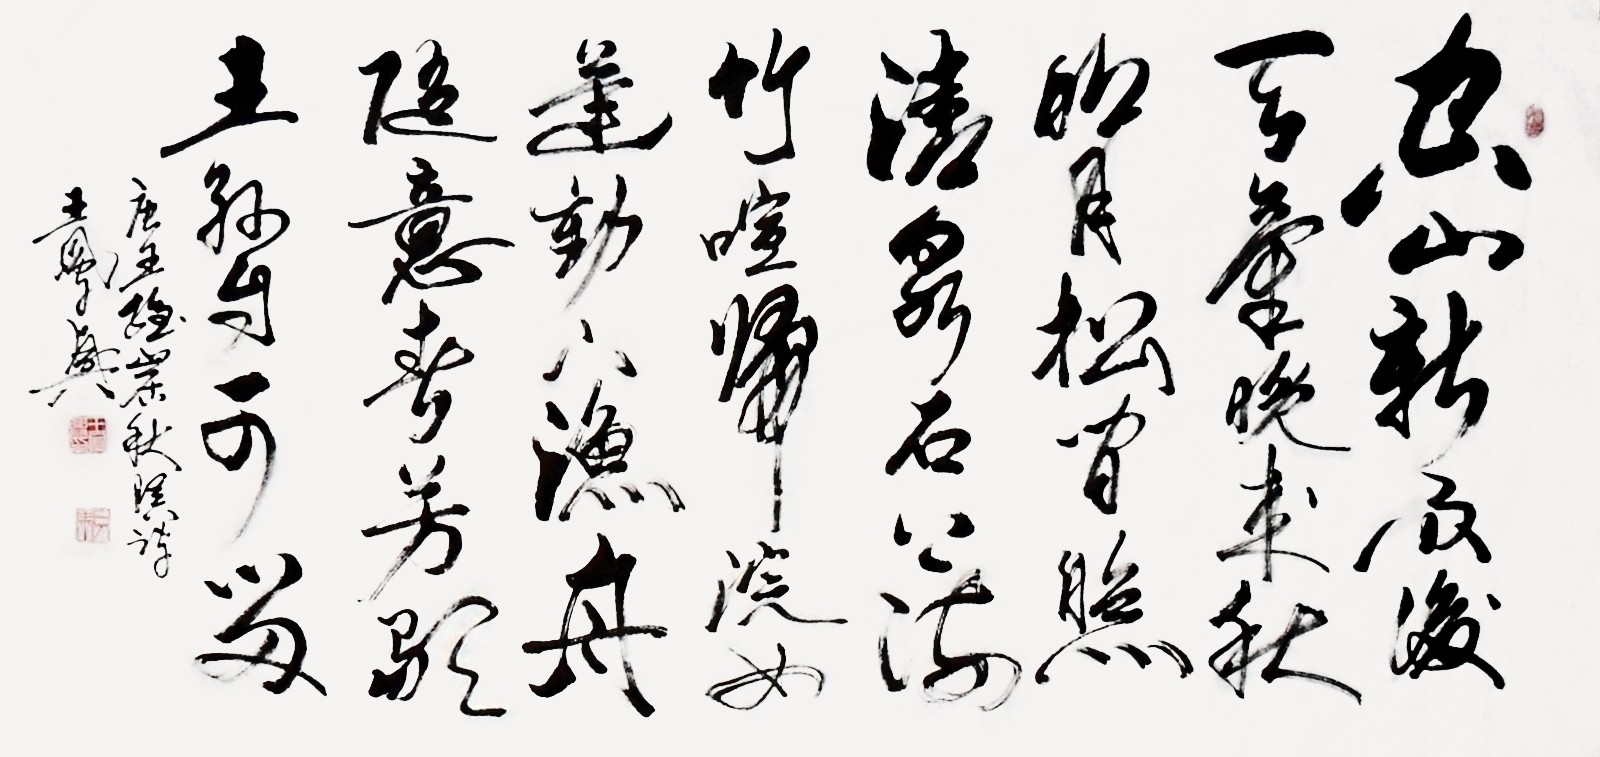 空山新雨後
天氣晚来秋
明月松間照
清泉石上流
竹喧歸浣女
蓮動下漁舟
隨意春芳歇
王孫自可留
唐王維山居秋暝詩